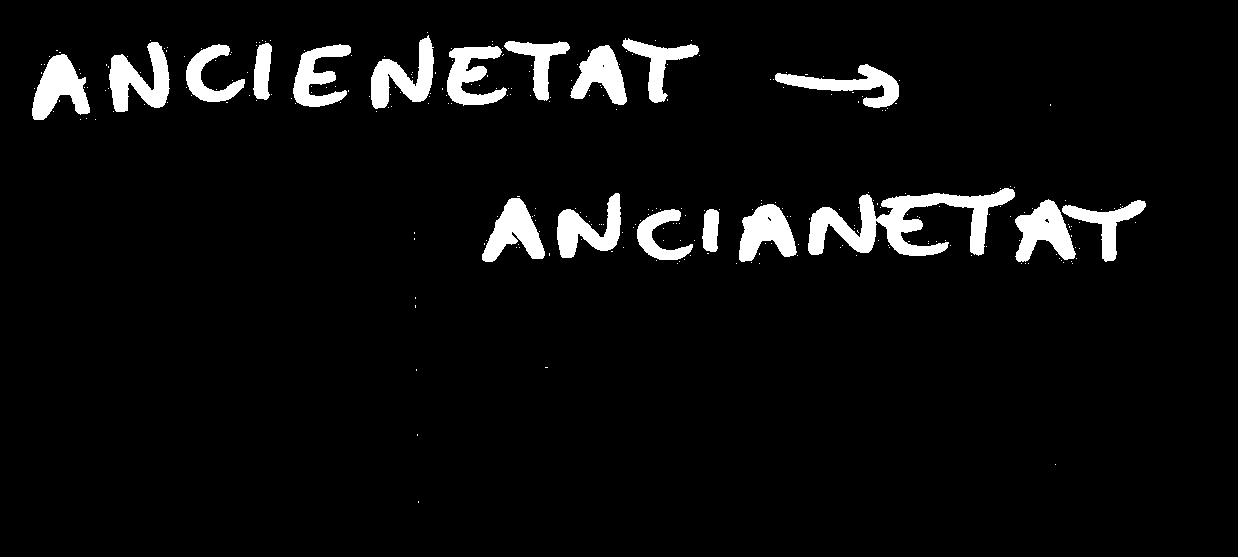 ANCIENETAT →
ANCIANETAT